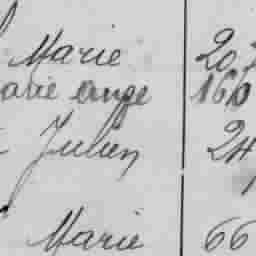 Marie 207
arie ange 160
Julien 24
Marie 66